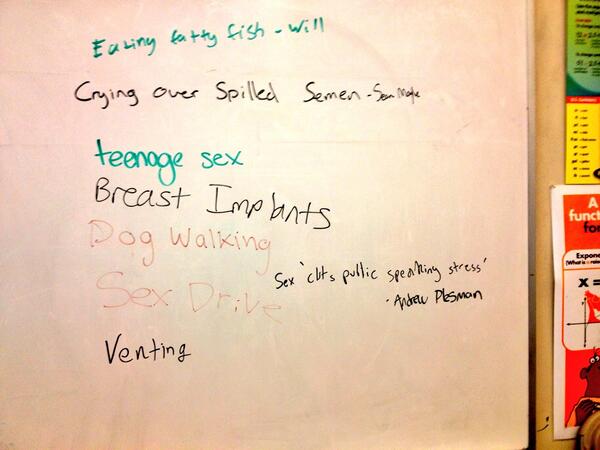 Eating fatty fish - Will
Crying over Spilled Semen - Sean
teenage sex
Breast Implants
Dog Walking
Sex 'cuts public speaking stress'
- Andrew Plesman
Sex Drive
Venting
A
funct
for
Expone
X =